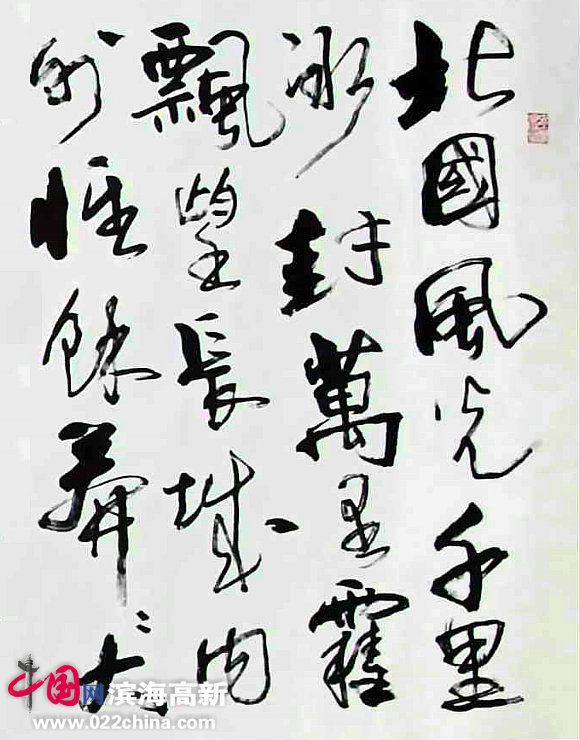 北國風光千里
冰封萬里雪
飄望長城内
外惟餘莽莽
中国网滨海高新
www.022china.com